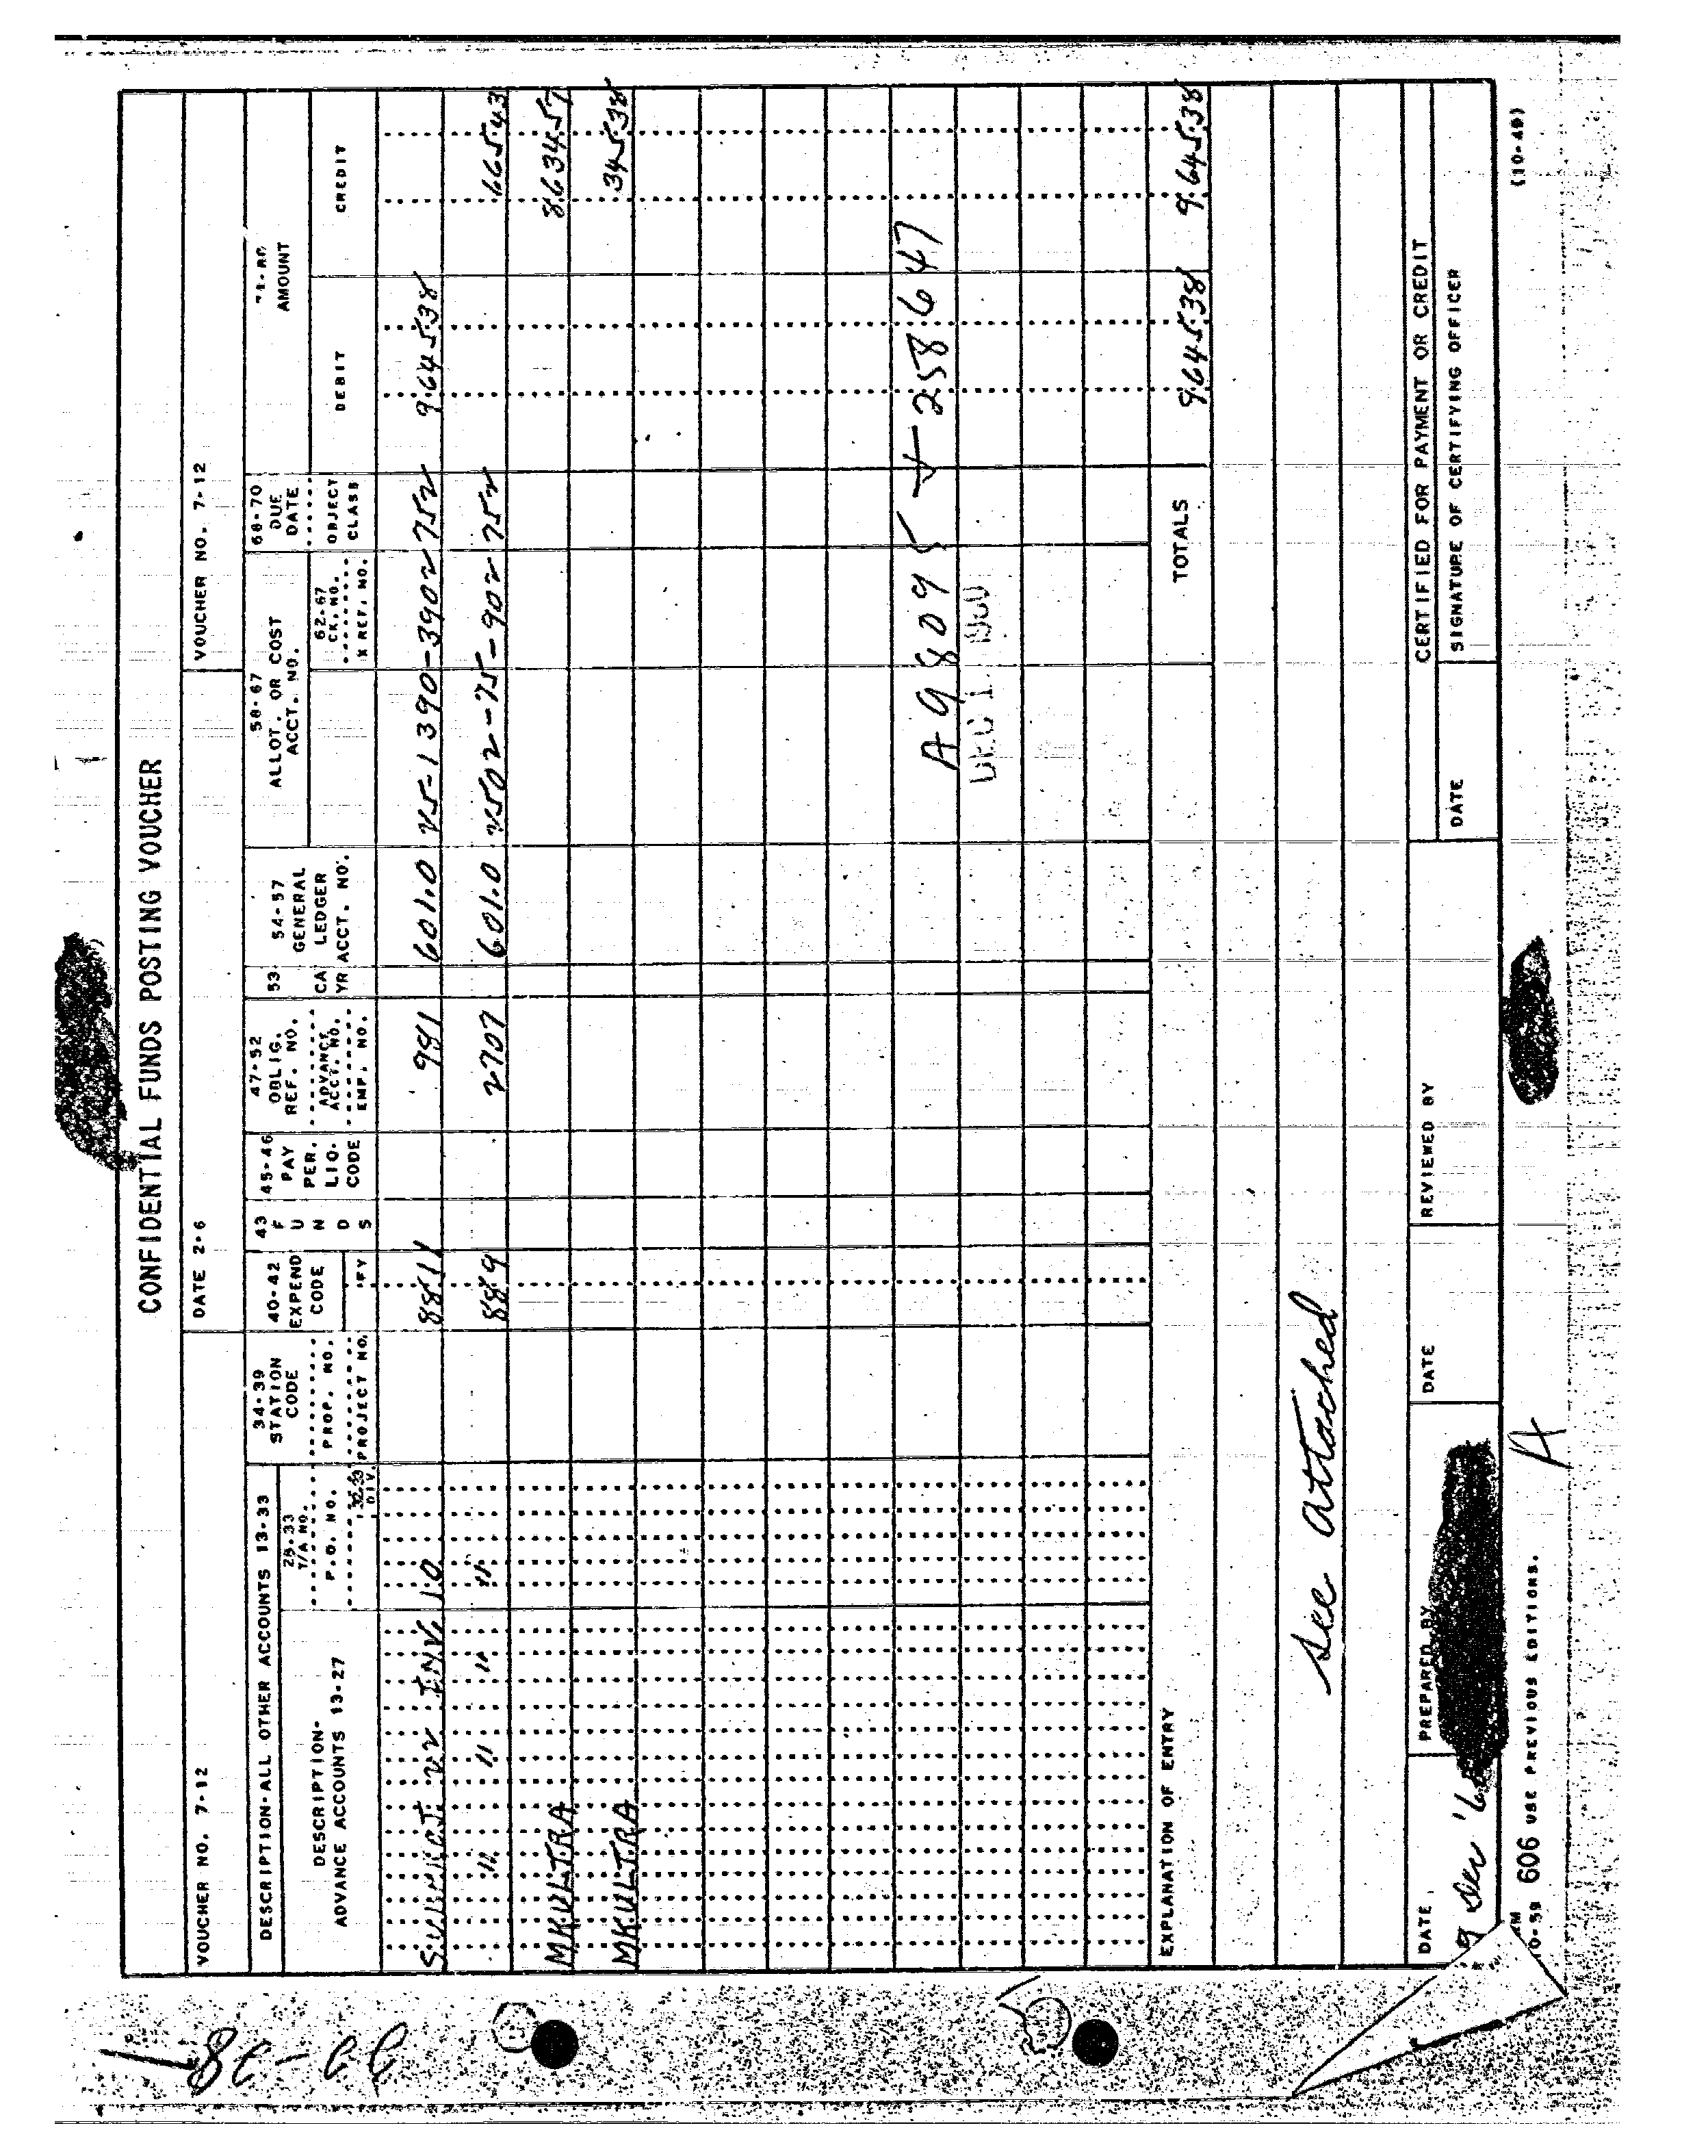 CONFIDENTIAL FUNDS POSTING VOUCHER
VOUCHER NO. 7-12
DATE 2-6
VOUCHER NO. 7-12
DESCRIPTION-ALL OTHER ACCOUNTS 13-33
DESCRIPTION-
ADVANCE ACCOUNTS 13-27
28-33
T/A NO.
P.O. NO.
DIV.
34-39
STATION
CODE
PROP. NO.
PROJECT NO.
40-42
EXPEND
CODE
FY
43
F
U
N
D
S
45-46
PAY
PER.
LIQ.
CODE
47-52
OBLIG.
REF. NO.
ADVANCE
ACCT. NO.
EMP. NO.
53
CA
YR
54-57
GENERAL
LEDGER
ACCT. NO.
58-67
ALLOT. OR COST
ACCT. NO.
62-67
CK. NO.
X REF. NO.
68-70
DUE
DATE
OBJECT
CLASS
AMOUNT
DEBIT
CREDIT
INV. 10 8811 981 601.0 25-1390-3902 752 9,645.38
" " " " 889 2707 601.0 2502-75-902 752 665.43
MKULTRA 8,634.57
MKULTRA 345.38
A 98095 258647
TOTALS 9,645.38 9,645.38
EXPLANATION OF ENTRY
See attached
DATE
PREPARED BY
DATE
REVIEWED BY
CERTIFIED FOR PAYMENT OR CREDIT
DATE
SIGNATURE OF CERTIFYING OFFICER
606 USE PREVIOUS EDITIONS.
A
(10-49)